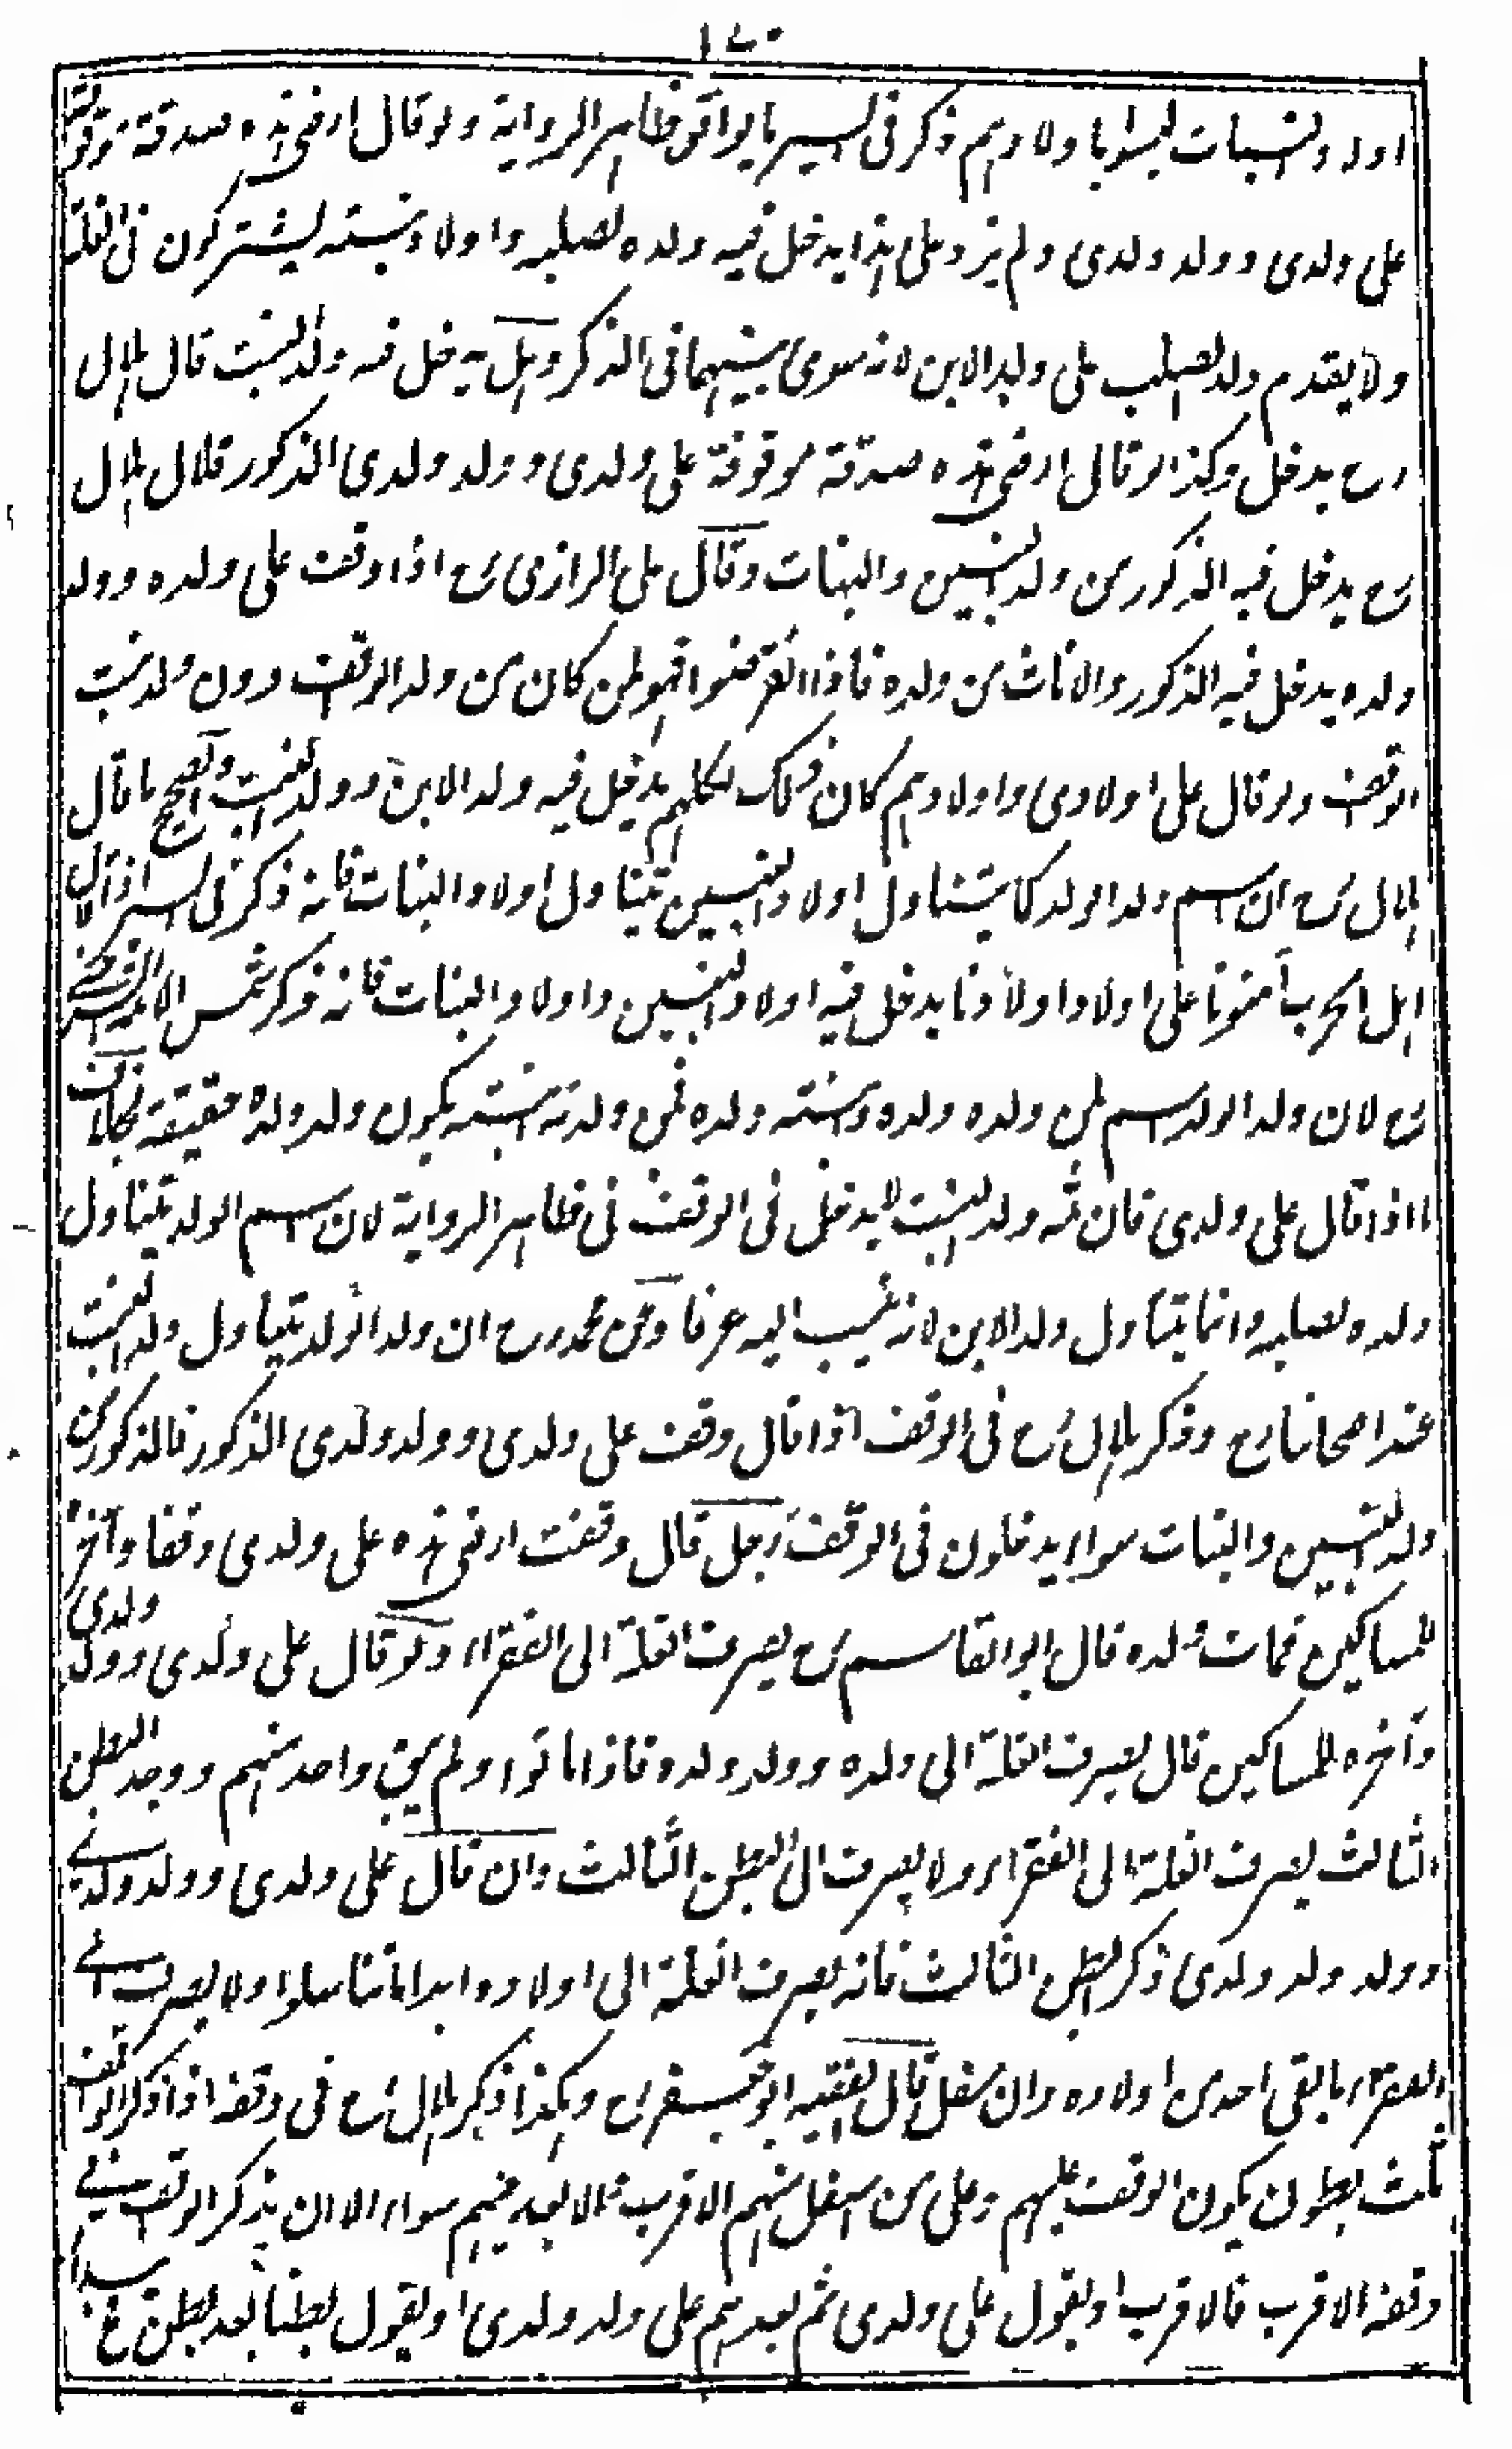 ١٧٠
اولاد البنات ليسوا باولادهم ذكر فى السير ما يوافق ظاهر الرواية ولو قال ارضى هذه صدقة موقوفة
على ولدى وولد ولدى ولم يزد على هذا يدخل فيه ولده لصلبه واولاد بنيه يشتركون فى الغلة
ولا يقدم ولد الصلب على ولد الابن لانه سوى بينهما فى الذكر وهل يدخل فيه ولد البنت قال هلال
رح يدخل وكذا لو قال ارضى هذه صدقة موقوفة على ولدى وولد ولدى الذكور قال هلال
رح يدخل فيه الذكور من ولد البنين والبنات وقال على الرازى رح اذا وقف على ولده وولد
ولده يدخل فيه الذكور والاناث من ولده فاذا انقرضوا فهو لمن كان من ولد الواقف دون ولد بنت
الواقف ولو قال على اولادى واولادهم كان ذلك لكلهم يدخل فيه ولد الابن وولد البنت والصحيح ما قال
هلال رح ان اسم ولد الولد كما يتناول اولاد البنين يتناول اولاد البنات فانه ذكر فى السير اذا قال
اهل الحرب آمنونا على اولاد اولادنا يدخل فيه اولاد البنين واولاد البنات فانه ذكر شمس الائمة السرخسى
رح لان ولد الولد اسم لمن ولده ولده وابنته ولده فمن ولدته ابنته يكون ولد ولده حقيقة بخلاف
ما اذا قال على ولدى فان ثمه ولد البنت لا يدخل فى الوقف فى ظاهر الرواية لان اسم الولد يتناول
ولده لصلبه وانما يتناول ولد الابن لانه ينسب اليه عرفا وعن محمد رح ان ولد الولد يتناول ولد البنت
عند اصحابنا رح وذكر هلال رح فى الوقف اذا قال وقف على ولدى وولد ولدى الذكور فالذكور من
ولد البنين والبنات سواء يدخلون فى الوقف رجل قال وقفت ارضى هذه على ولدى وقفا وآخره
للمساكين فمات ولده قال ابو القاسم رح يصرف الغلة الى الفقراء ولو قال على ولدى وولد ولدى
وآخره للمساكين قال يصرف الغلة الى ولده وولد ولده فاذا ماتوا ولم يبق واحد منهم ووجد البطن
الثالث يصرف الغلة الى الفقراء ولا يصرف الى البطن الثالث وان قال على ولدى وولد ولدى
وولد ولد ولدى ذكر البطن الثالث فانه يصرف الغلة الى اولاده ابدا ما تناسلوا ولا يصرف الى
الفقراء ما بقى احد من اولاده وان سفل قال الفقيه ابو جعفر رح وهكذا ذكر هلال رح فى وقفه اذا ذكر الواقف
ثلث بطون يكون الوقف عليهم وعلى من اسفل منهم الاقرب والابعد فيهم سواء الا ان يذكر الواقف فى
وقفه الاقرب فالاقرب او يقول على ولدى ثم بعدهم على ولد ولدى او يقول بطنا بعد بطن